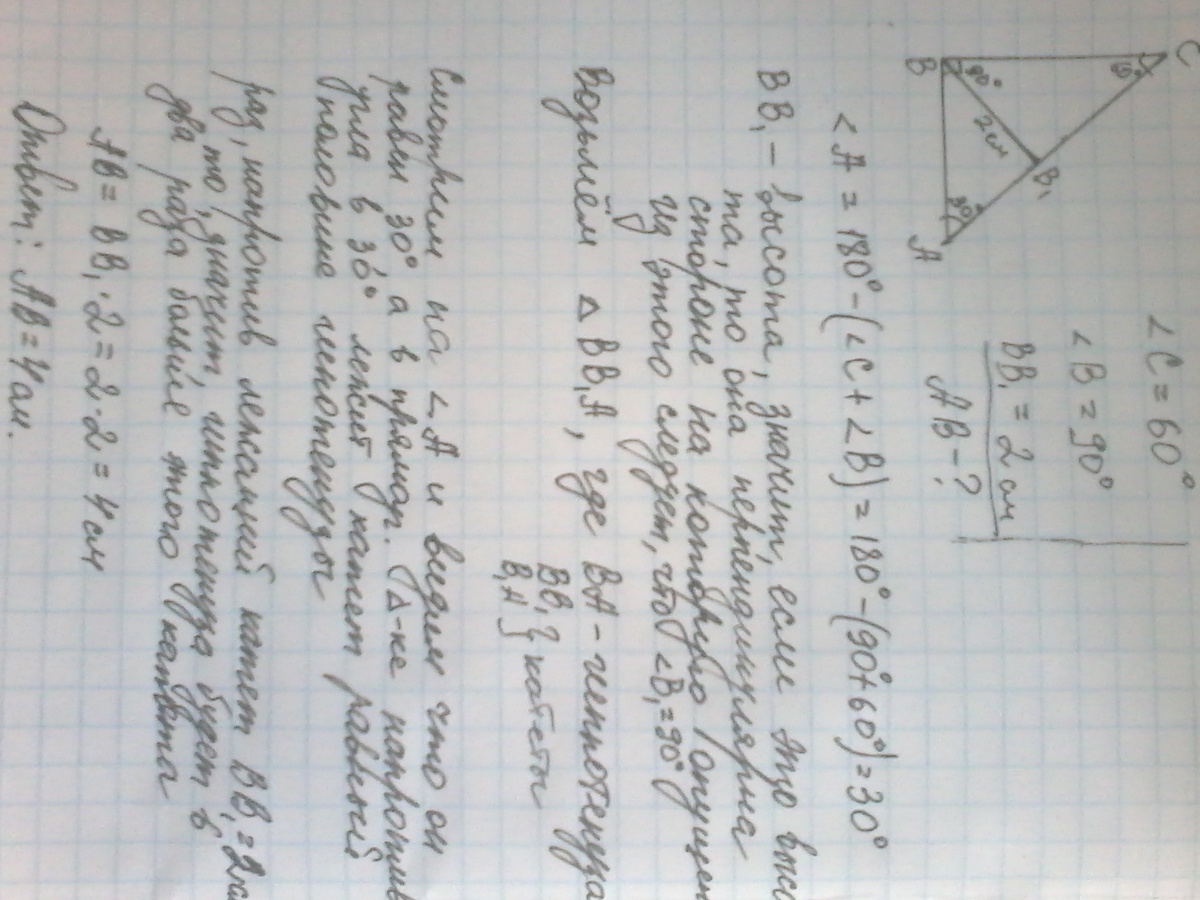 C
60°
B
90°
2см
B₁
30°
A
∠C = 60°
∠B = 90°
BB₁ = 2 см
AB - ?
∠A = 180° - (∠C + ∠B) = 180° - (90° + 60°) = 30°
BB₁ - высота, значит, если это высо
та, то она перпендикулярна
стороне на которую опущен
Из этого следует, что ∠B₁ = 90°
Возьмём △ BB₁A, где BA - гиппотенуза
BB₁ } катеты
B₁A
Смотрим на ∠A и видим что он
равен 30° а в прямоуг. △-ке напротив
угла в 30° лежит катет равный
половине гипотенузы
раз, напротив лежащий катет BB₁ = 2см
то, значит, гиппотенуза будет в
два раза больше этого катета
AB = BB₁ · 2 = 2 · 2 = 4 см
Ответ: AB = 4 см.